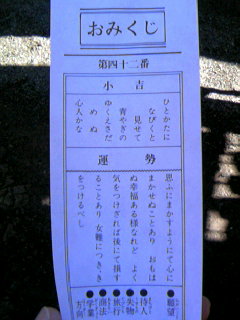 おみくじ
第四十二番
小吉
ひとかたに
なびくと
見せて
青やぎの
ゆくえさだ
めぬ
心人かな
運勢
思ふにまかすようにて心に
まかせぬことあり おもは
ぬ幸福ある様なれど よく
気をつけざれば後にて損す
ることあり 女難につき気
をつけるべし
●願望
●待人
●失物
●旅行
●商法
●学業
●方向